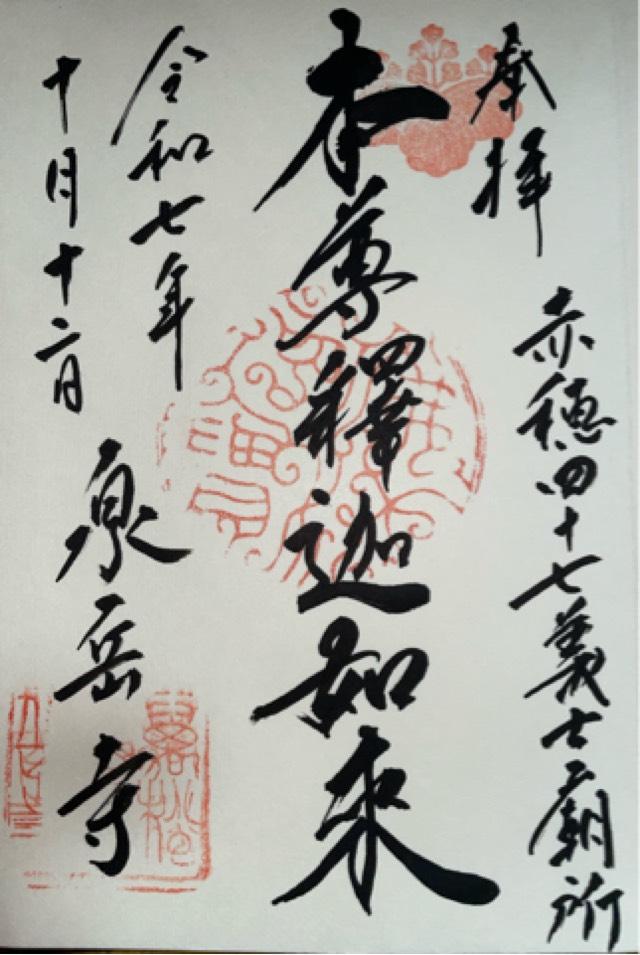 奉拝
赤穂四十七義士廟所
本尊釋迦如来
令和七年
十月十二日
泉岳寺